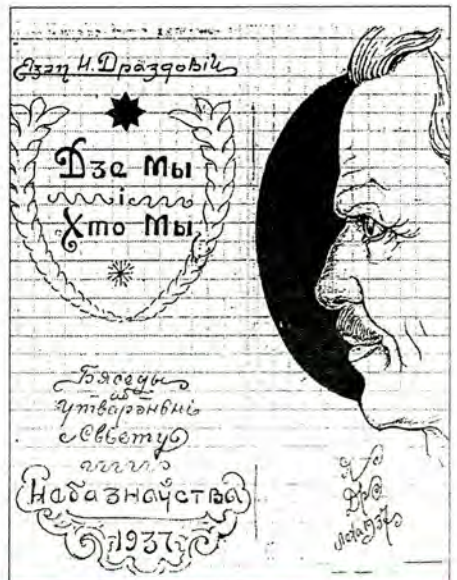 Язэп Н. Драздовіч
Дзе Мы
і
Хто Мы
Бяседы
аб
утварэньні
Сьвету
Небазнаўства
1937
Я
Др
Лета 1937